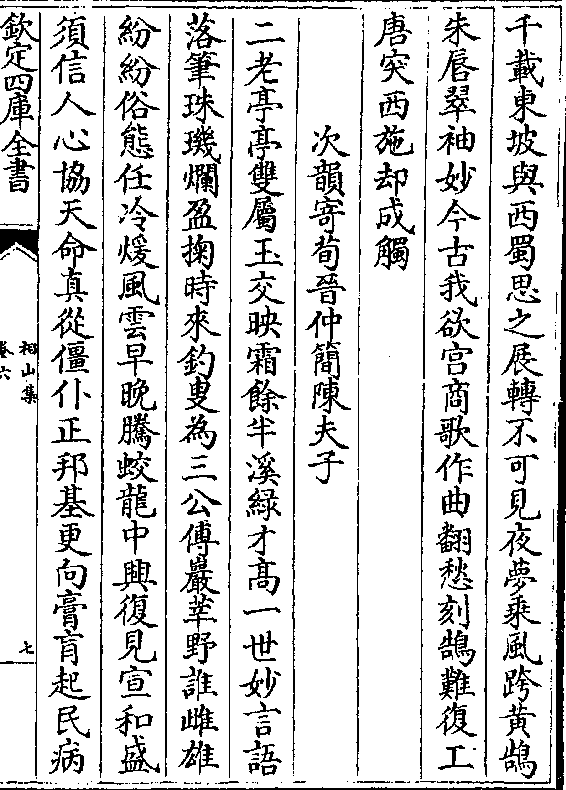 千載東坡與西蜀思之展轉不可見夜夢乘風跨黃鵠
朱唇翠袖妙今古我欲宫商歌作曲翻愁刻鵠難復工
唐突西施却成觸
次韻寄荀晉仲簡陳夫子
二老亭亭雙屬玉交映霜餘半溪緑才髙一世妙言語
落筆珠璣爛盈掬時來釣叟為三公傅巖莘野誰雌雄
紛紛俗態任冷煖風雲早晩騰蛟龍中興復見宣和盛
須信人心協天命真從僵仆正邦基更向膏肓起民病
欽定四庫全書
相山集
卷六
七